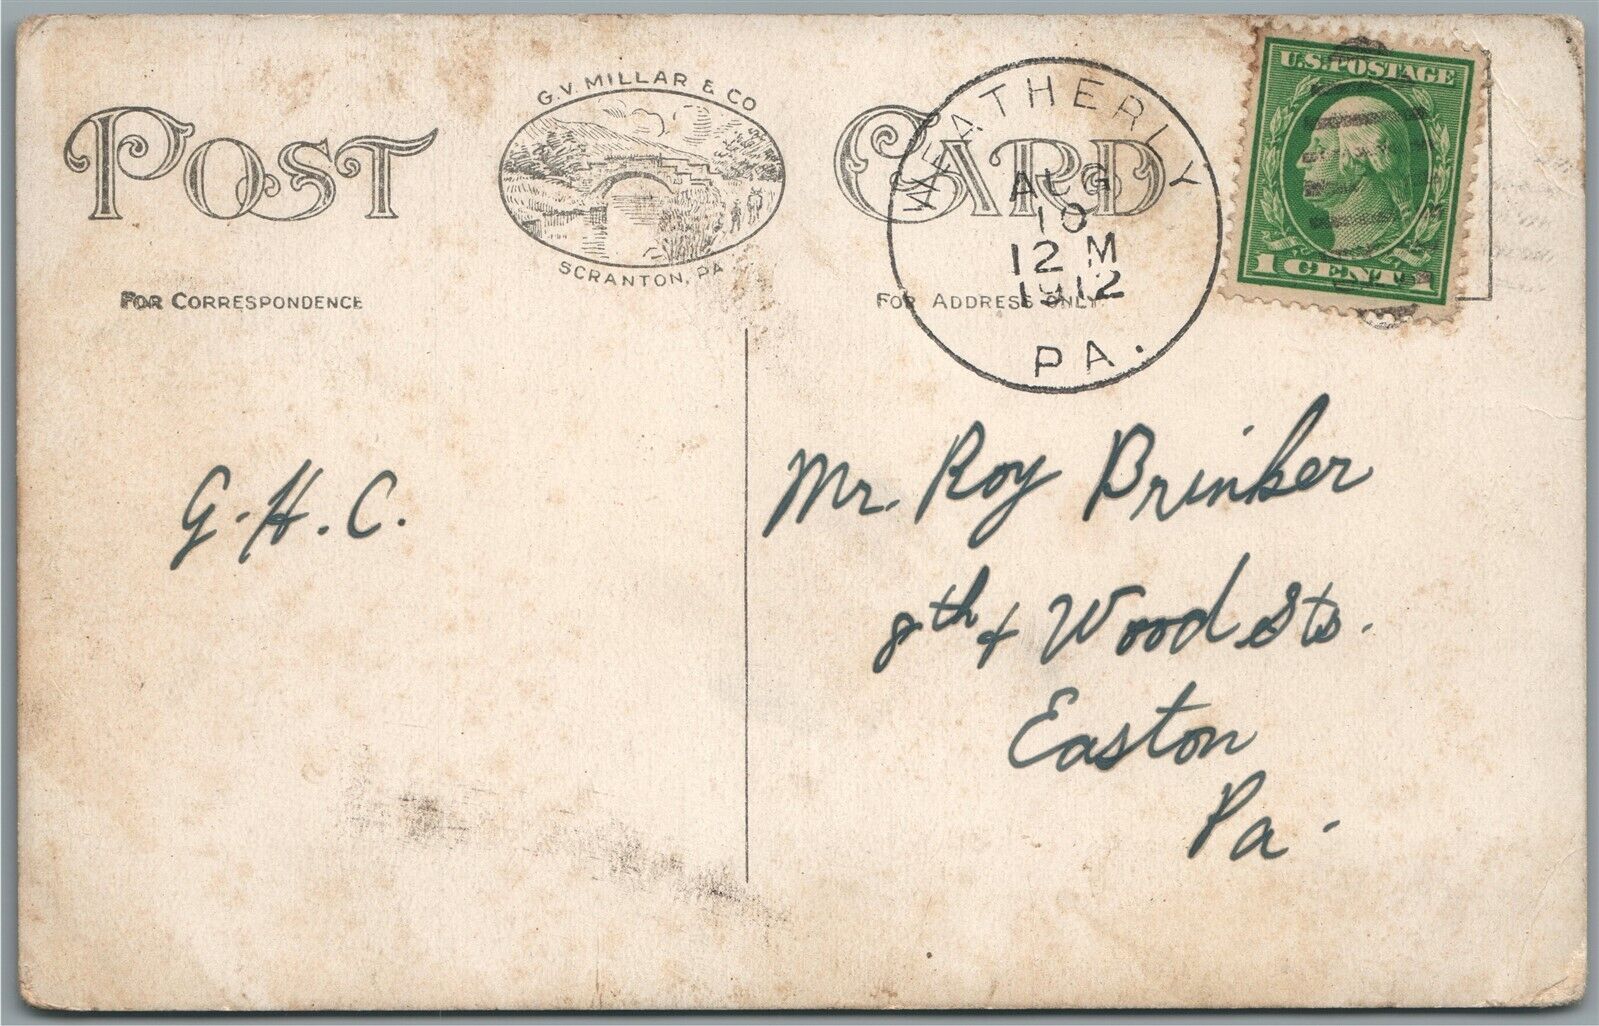 POST CARD
G.V. MILLAR & CO
SCRANTON, PA
FOR CORRESPONDENCE
FOR ADDRESS ONLY
WEATHERLY
AUG
10
12 M
1912
PA.
U.S. POSTAGE
1 CENT 1
G. H. C.
Mr. Roy Brinker
8th & Wood Sts.
Easton
Pa.